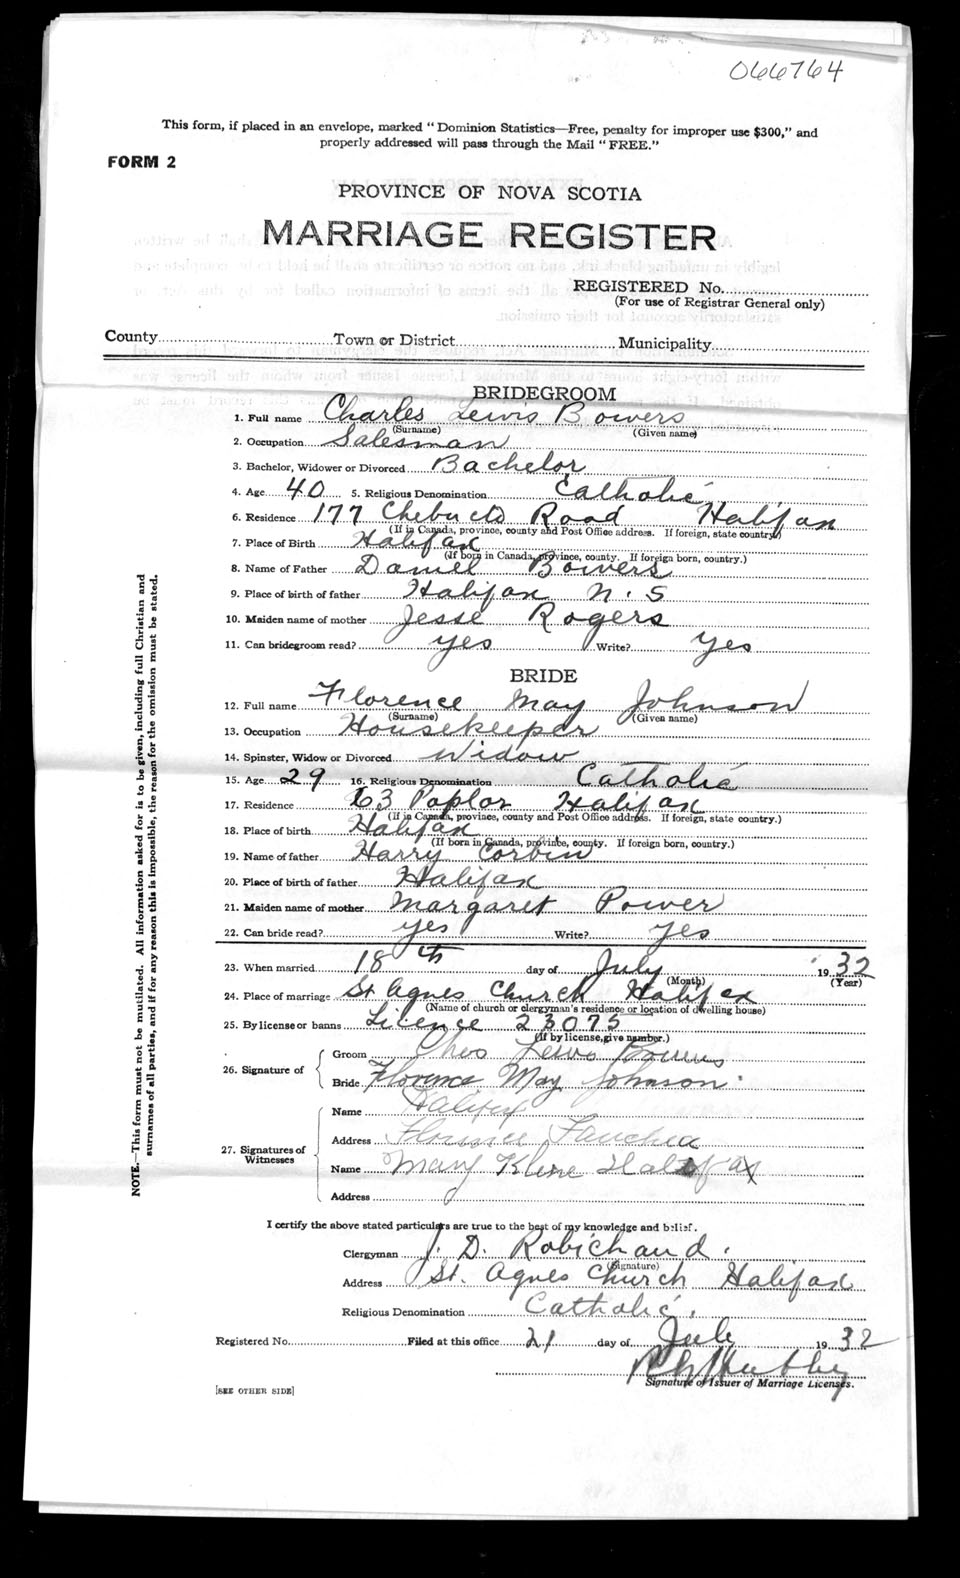 066764
This form, if placed in an envelope, marked " Dominion Statistics—Free, penalty for improper use $300," and
properly addressed will pass through the Mail " FREE."
FORM 2
PROVINCE OF NOVA SCOTIA
MARRIAGE REGISTER
REGISTERED No.
(For use of Registrar General only)
County Town or District Municipality
BRIDEGROOM
1. Full name Charles Lewis Bowers
(Surname) (Given name)
2. Occupation Salesman
3. Bachelor, Widower or Divorced Bachelor
4. Age 40 5. Religious Denomination Catholic
6. Residence 177 Chebucto Road Halifax
(If in Canada, province, county and Post Office address. If foreign, state country)
7. Place of Birth Halifax
(If born in Canada, province, county. If foreign born, country.)
8. Name of Father Daniel Bowers
9. Place of birth of father Halifax N.S
10. Maiden name of mother Jesse Rogers
11. Can bridegroom read? yes Write? yes
BRIDE
12. Full name Florence May Johnson
(Surname) (Given name)
13. Occupation Housekeeper
14. Spinster, Widow or Divorced Widow
15. Age 29 16. Religious Denomination Catholic
17. Residence 63 Poplor Halifax
(If in Canada, province, county and Post Office address. If foreign, state country.)
18. Place of birth Halifax
(If born in Canada, province, county. If foreign born, country.)
19. Name of father Harry Corbin
20. Place of birth of father Halifax
21. Maiden name of mother Margaret Power
22. Can bride read? yes Write? yes
23. When married 18th day of July 1932
(Month) (Year)
24. Place of marriage St Agnes Church Halifax
(Name of church or clergyman's residence or location of dwelling house)
25. By license or banns Licence 23075
(If by license, give number.)
26. Signature of
Groom Chas Lewis Bowers
Bride Florence May Johnson
27. Signatures of Witnesses
Name Halifax
Address Florence
Name Mary Kline Halifax
Address
I certify the above stated particulars are true to the best of my knowledge and belief.
Clergyman J. D. Robichaud.
(Signature)
Address St. Agnes Church Halifax
Religious Denomination Catholic.
Registered No. Filed at this office 21 day of July 1932
Signature of Issuer of Marriage Licenses.
[SEE OTHER SIDE]
NOTE.—This form must not be mutilated. All information asked for is to be given, including full Christian and
surnames of all parties, and if for any reason this is impossible, the reason for the omission must be stated.